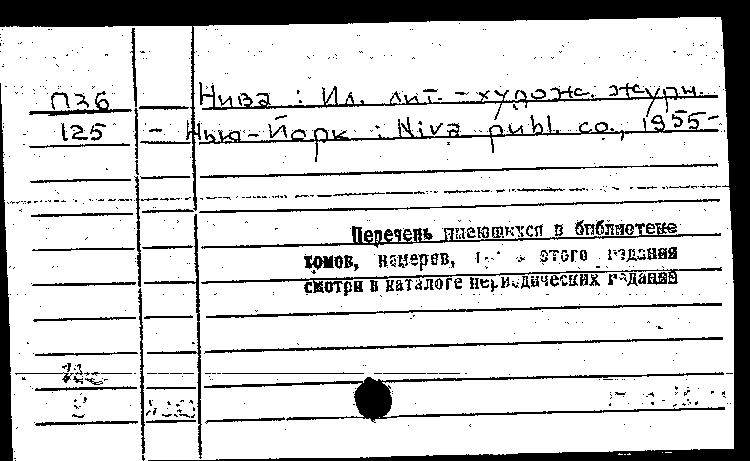 П36 Нива : Ил. лит.-худож. журн.
125 - Нью-Йорк : Niva publ. co., 1955-
Перечень имеющихся в библиотеке
томов, номеров, этого издания
смотри в каталоге периодических изданий